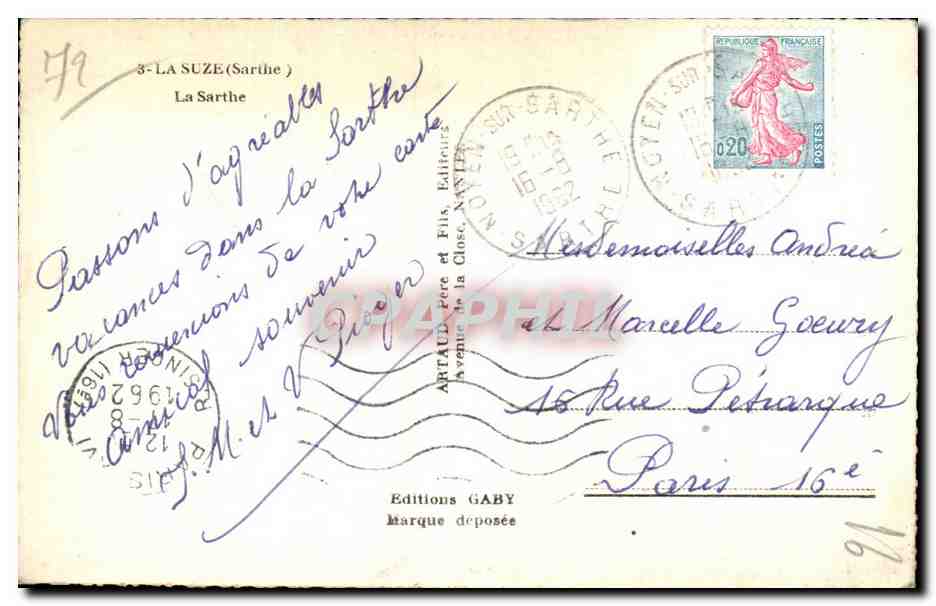 79
3-LA SUZE (Sarthe)
La Sarthe
Passons d'agréables
vacances dans la Sarthe
Vous remercions de votre carte
Amical souvenir
J. M. et V
ARTAUD Père et Fils, Editeurs
Avenue de la Close, NANTES
NOYEN-SUR-SARTHE
16
1962
SARTHE
NOYEN-SUR-SA
SARTHE
REPUBLIQUE FRANÇAISE
0,20
POSTES
Mesdemoiselles Andréa
et Marcelle Goeury
16 Rue Pétrarque
Paris 16è
PARIS
SINGER (16
12-8
1962
CPAPHIL
Editions GABY
Marque déposée